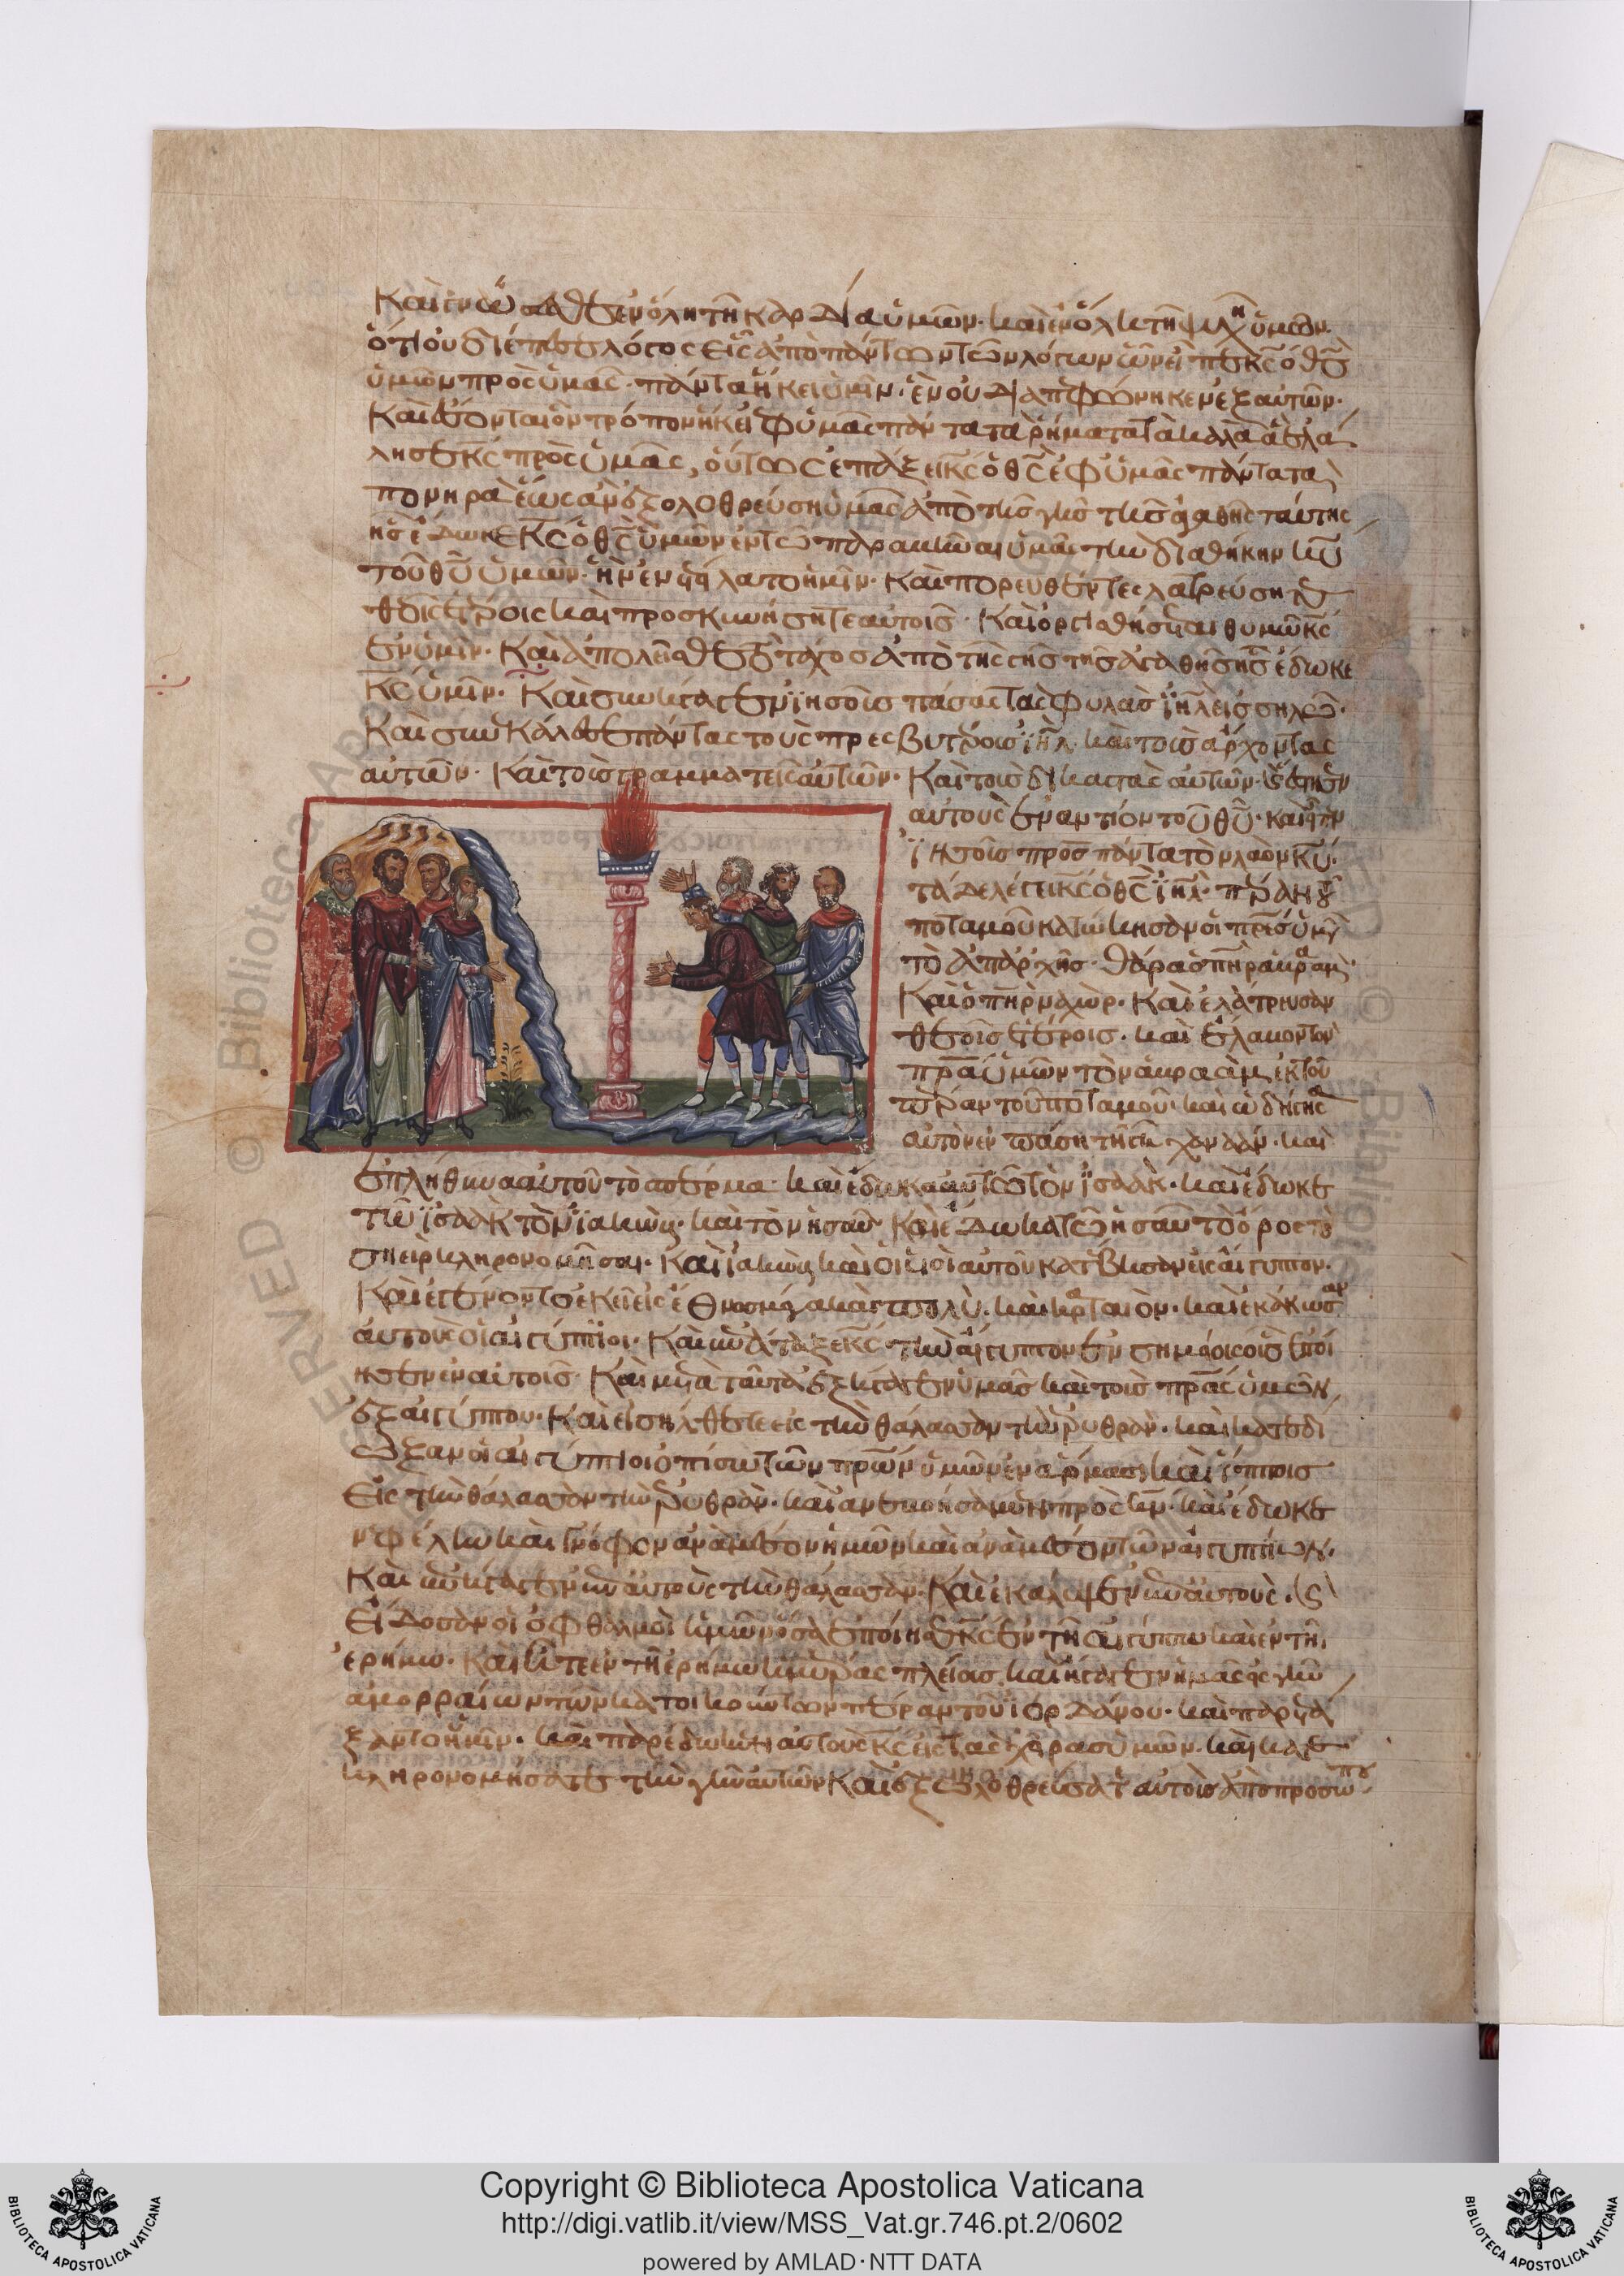 Καὶ γνώσεσθε ἐν ὅλη τῆ καρδία ὑμῶν· καὶ ἐν ὅλη τῆ ψυχῆ ὑμῶν·
ὅτι οὐ διέπεσε λόγος εἷς ἀπὸ πάντων τῶν λόγων ὧν εἶπε κ̅ς̅ ὁ θ̅ς̅
ὑμῶν πρὸς ὑμᾶς· πάντα ἥκει ὑμῖν· ἓν οὐ διαπεφώνηκεν ἐξ αὐτῶν·
Καὶ ἔσονται ὃν τρόπον ἥκει ἐφ ὑμᾶς πάντα τὰ ῥήματα τὰ καλὰ ἃ ἐλά
λησε κ̅ς̅ πρὸς ὑμᾶς, οὕτως ἐπάξει κ̅ς̅ ὁ θ̅ς̅ ἐφ ὑμᾶς πάντα τὰ
πονηρὰ ἕως ἂν ἐξολοθρεύση ὑμᾶς ἀπὸ τῆς γῆς τῆς ἀγαθῆς ταύτης
ἧς ἔδωκε κ̅ς̅ ὁ θ̅ς̅ ὑμῶν ἐν τῶ παραβῆναι ὑμᾶς τὴν διαθήκην κ̅υ̅
τοῦ θ̅υ̅ ὑμῶν· ἣν ἐνετείλατο ἡμῖν· Καὶ πορευθέντες λατρεύσητε
θεοῖς ἑτέροις καὶ προσκυνήσητε αὐτοῖς· Καὶ ὀργισθήσεται θυμῶ κ̅ς̅
ἐν ὑμῖν· Καὶ ἀπολεῖσθε τὸ τάχος ἀπὸ τῆς γῆς τῆς ἀγαθῆς ἧς ἔδωκε
κ̅ς̅ ὑμῖν· Καὶ συνήγαγεν ἰησοῦς πάσας τὰς φυλὰς ἰ̅η̅λ̅ εἰς σηλώ·
Καὶ συνεκάλεσε πάντας τοὺς πρεσβυτέρους ἰ̅η̅λ̅· καὶ τοὺς ἄρχοντας
αὐτῶν· Καὶ τοὺς γραμματεῖς αὐτῶν· Καὶ τοὺς δικαστὰς αὐτῶν· ἔστησεν
αὐτοὺς ἐναντίον τοῦ θ̅υ̅· καὶ εἶπεν
ἰησοῦς πρὸς πάντα τὸν λαὸν κ̅υ̅·
τάδε λέγει κ̅ς̅ ὁ θ̅ς̅ ἰ̅η̅λ̅· πέραν τοῦ
ποταμοῦ κατώκησαν οἱ π̅ρ̅ε̅ς̅ ὑμῶν
τὸ ἀπάρχῆς· θάρας π̅η̅ρ̅ ἁβραάμ·
Καὶ ὁ π̅η̅ρ̅ ναχώρ· Καὶ ἐλάτρευσαν
θεοῖς ἑτέροις· καὶ ἔλαβον τὸν
π̅ρ̅α̅ ὑμῶν τὸν ἁβραὰμ ἐκ τοῦ
πέραν τοῦ ποταμοῦ· καὶ ὡδήγησα
αὐτὸν ἐν πάση τῆ γῆ χαναάν· καὶ
ἐπλήθυνα αὐτοῦ τὸ σπέρμα· καὶ ἔδωκα αὐτῶ τὸν ἰσαάκ· καὶ ἔδωκα
τῶ ἰσαὰκ τὸν ἰακώβ· καὶ τὸν ἠσαῦ· Καὶ ἔδωκα τῶ ἠσαῦ τὸ ὄρος τὸ
σηεὶρ κληρονομῆσαι· Καὶ ἰακὼβ καὶ οἱ υἱοὶ αὐτοῦ κατέβησαν εἰς αἴγυπτον·
Καὶ ἐγένοντο ἐκεῖ εἰς ἔθνος μέγα καὶ πολὺ· καὶ κραταιὸν· καὶ ἐκάκωσαν
αὐτοὺς οἱ αἰγύπτιοι· Καὶ ἐπάταξε κ̅ς̅ τὴν αἴγυπτον ἐν σημείοις οἷς ἐποί
ησεν ἐν αὐτοῖς· Καὶ μετὰ ταῦτα ἐξήγαγεν ὑμᾶς καὶ τοὺς π̅ρ̅α̅ς̅ ὑμῶν
ἐξ αἰγύπτου· Καὶ εἰσήλθετε εἰς τὴν θάλασσαν τὴν ἐρυθράν· καὶ κατεδί
ωξαν οἱ αἰγύπτιοι ὀπίσω τῶν π̅ρ̅ω̅ν̅ ὑμῶν ἐν ἅρμασι καὶ ἵπποις
εἰς τὴν θάλασσαν τὴν ἐρυθράν· καὶ ἀνεβοήσαμεν πρὸς κ̅ν̅· καὶ ἔδωκε
νεφέλην καὶ γνόφον ἀνὰ μέσον ἡμῶν καὶ ἀνὰ μέσον τῶν αἰγυπτίων·
Καὶ ἐπήγαγεν ἐπ αὐτοὺς τὴν θάλασσαν· Καὶ ἐκάλυψεν αὐτούς· Καὶ
εἴδοσαν οἱ ὀφθαλμοὶ ὑμῶν ὅσα ἐποίησε κ̅ς̅ ἐν τῆ αἰγύπτω καὶ ἐν τῆ
ἐρήμω· Καὶ ἦτε ἐν τῆ ἐρήμω ἡμέρας πλείους· καὶ ἤγαγεν ἡμᾶς εἰς γῆν
ἀμορραίων τῶν κατοικούντων πέραν τοῦ ἰορδάνου· καὶ παρετά
ξαντο ἡμῖν· καὶ παρέδωκεν αὐτοὺς κ̅ς̅ εἰς τὰς χεῖρας ὑμῶν· καὶ κατε
κληρονομήσατε τὴν γῆν αὐτῶν καὶ ἐξωλοθρεύσατε αὐτοὺς ἀπὸ προσώπου
Copyright © Biblioteca Apostolica Vaticana
http://digi.vatlib.it/view/MSS_Vat.gr.746.pt.2/0602
powered by AMLAD·NTT DATA
BIBLIOTECA APOSTOLICA VATICANA
BIBLIOTECA APOSTOLICA VATICANA